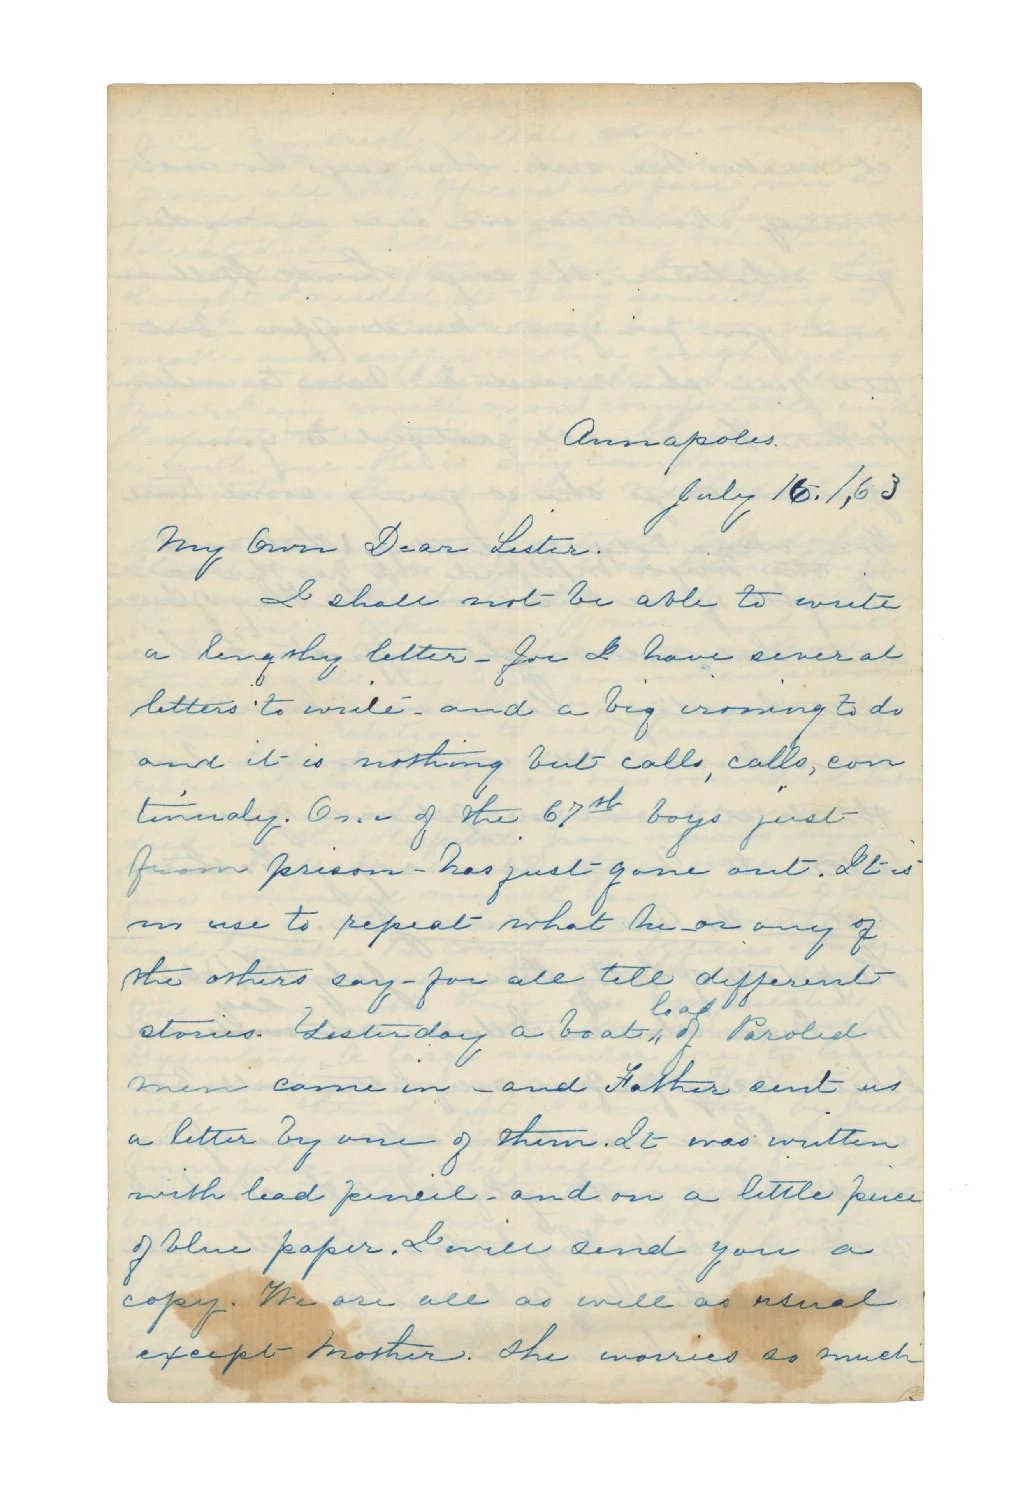 Annapolis.
July 16. /,63
My Own Dear Sister.
I shall not be able to write
a lengthy letter - for I have several
letters to write - and a big ironing to do
and it is nothing but calls, calls, con
tinualy. One of the 67th boys just
from prison - has just gone out. It is
no use to repeat what he - or any of
the others say - for all tell different
stories. Yesterday a boat load of Paroled
men came in - and Father sent us
a letter by one of them. It was written
with lead pencil - and on a little piece
of blue paper. I will send you a
copy. We are all as well as usual
except Mother. She worries so much